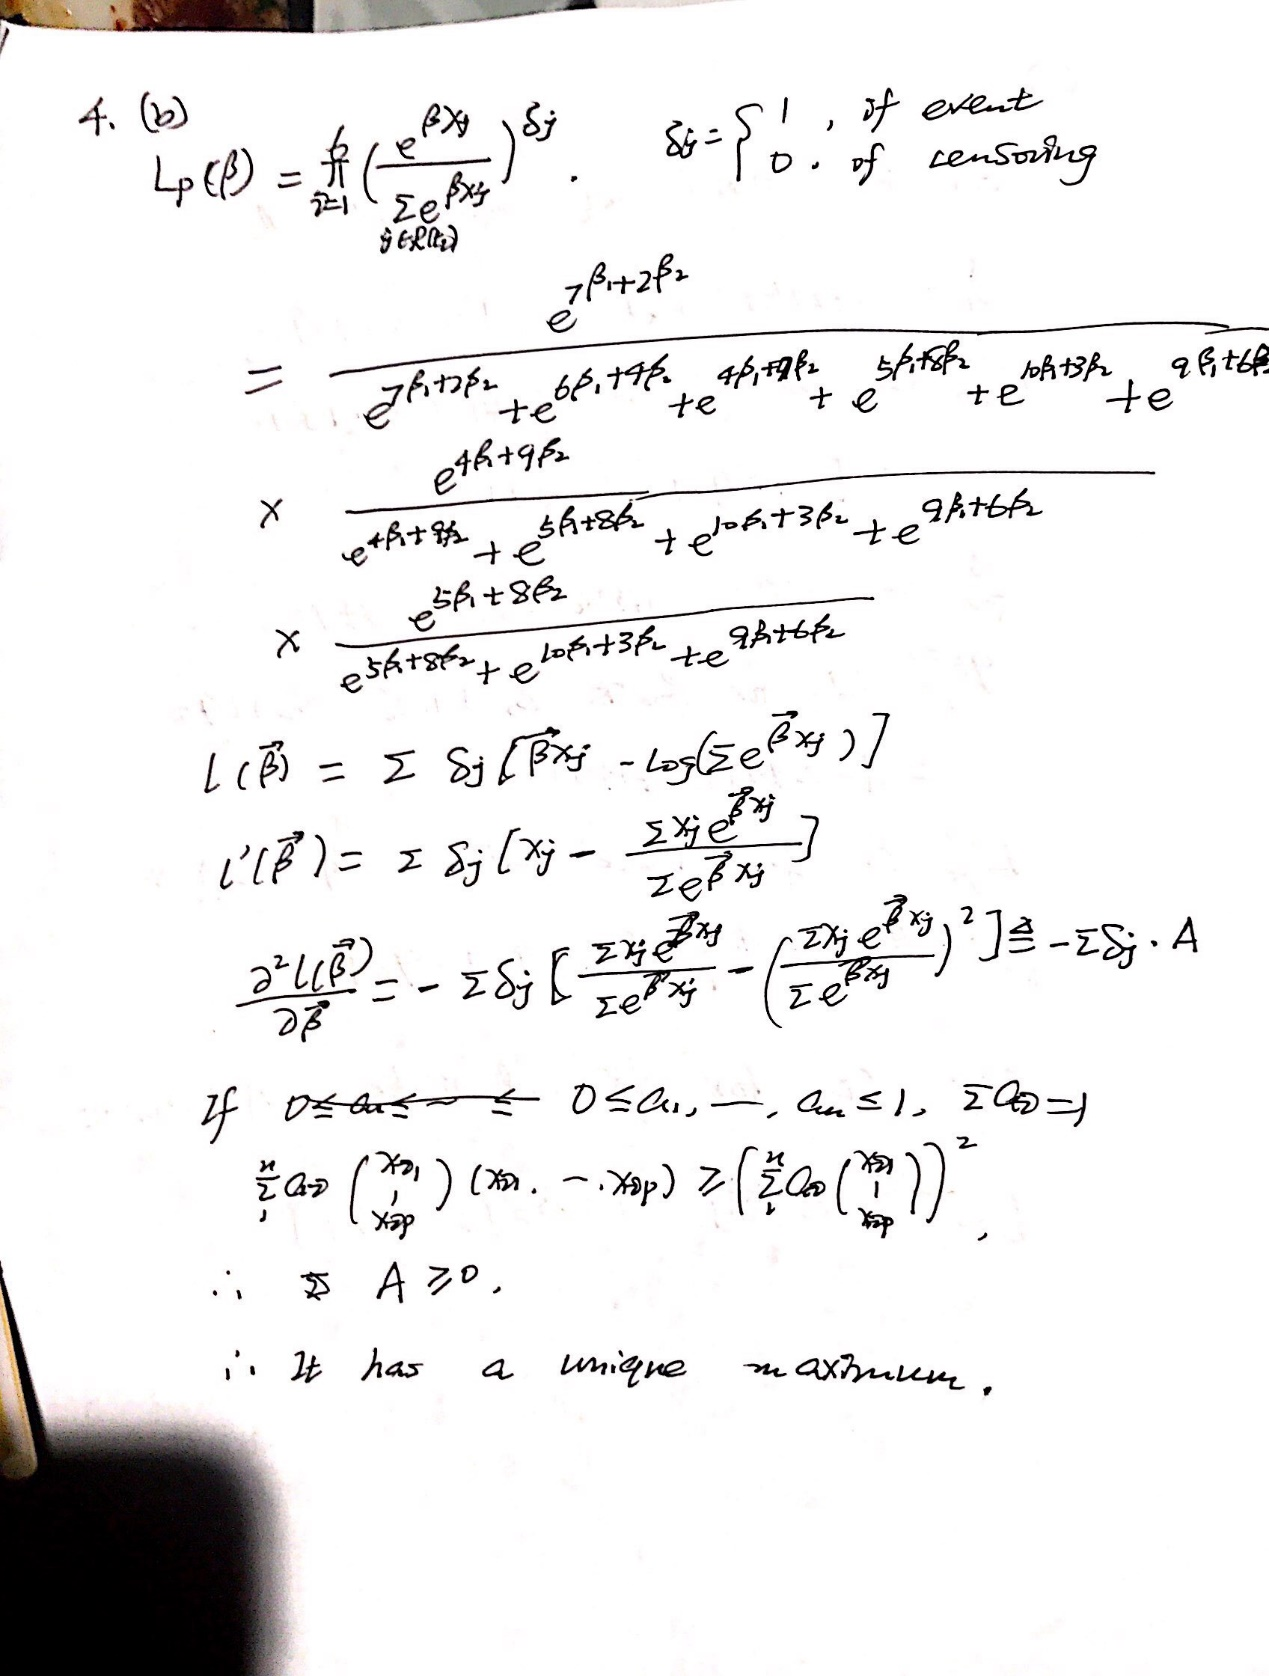 4. (b)
Lp(β) = ∏_{i=1}^{6} ( e^{βxj} / Σ_{j∈R(ti)} e^{βxj} )^{δj} . δj = { 1 , if event
0 . if censoring
= e^{7β₁+2β₂} / ( e^{7β₁+2β₂} + e^{6β₁+4β₂} + e^{4β₁+9β₂} + e^{5β₁+8β₂} + e^{10β₁+3β₂} + e^{9β₁+6β₂} )
× e^{4β₁+9β₂} / ( e^{4β₁+9β₂} + e^{5β₁+8β₂} + e^{10β₁+3β₂} + e^{9β₁+6β₂} )
× e^{5β₁+8β₂} / ( e^{5β₁+8β₂} + e^{10β₁+3β₂} + e^{9β₁+6β₂} )
l(β⃗) = Σ δj [ β⃗xj - log(Σe^{β⃗xj}) ]
l'(β⃗) = Σ δj [ xj - Σxj e^{β⃗xj} / Σe^{β⃗xj} ]
∂²l(β⃗) / ∂β⃗ = - Σδj [ Σxj e^{β⃗xj} / Σe^{β⃗xj} - ( Σxj e^{β⃗xj} / Σe^{β⃗xj} )² ] ≜ -Σδj · A
If 0 ≤ a₁, —, an ≤ 1, Σai = 1
Σ₁ⁿ ai (xi1 ¦ xip) (xi1. – . xip) ≥ ( Σ₁ⁿ ai (xi1 ¦ xip) )² ,
∴ A ≥ 0.
∴ It has a unique maximum.